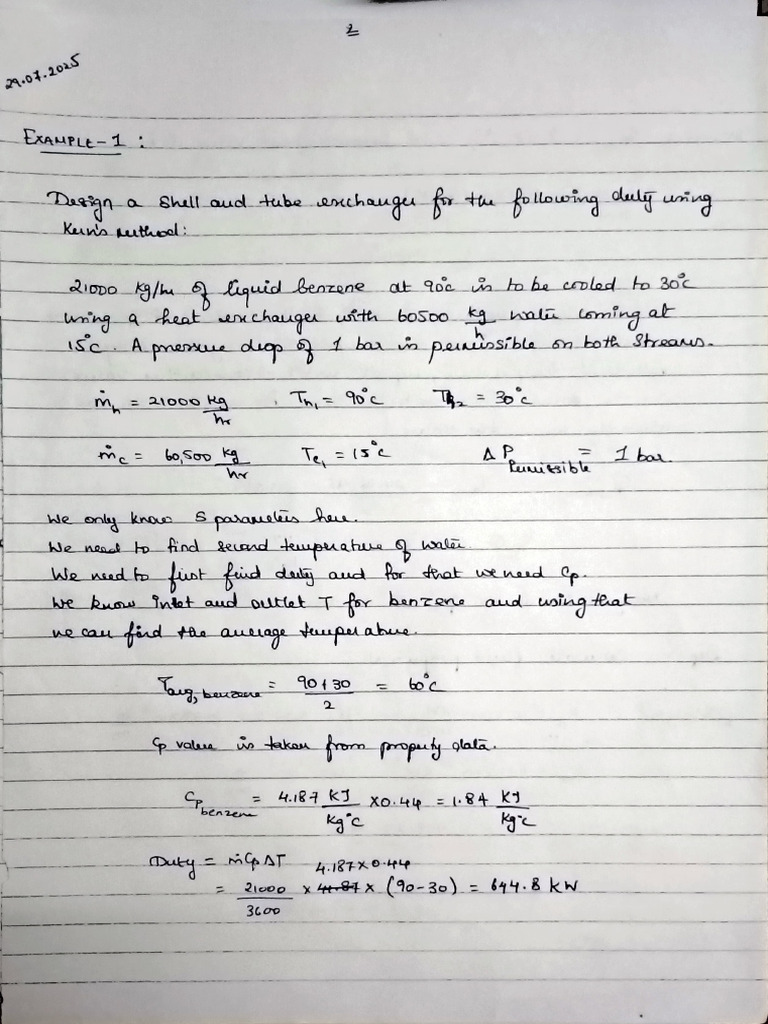 2
29.07.2025
EXAMPLE-1 :
Design a shell and tube exchanger for the following duty using
Kern's method:
21000 kg/hr of liquid benzene at 90°C is to be cooled to 30°C
using a heat exchanger with 60500 kg/h water coming at
15°C. A pressure drop of 1 bar is permissible on both streams.
ṁh = 21000 kg/hr , Th1 = 90°C Th2 = 30°C
ṁc = 60,500 kg/hr Tc1 = 15°C ΔP permissible = 1 bar.
We only know 5 parameters here.
We need to find second temperature of water.
We need to first find duty and for that we need Cp.
We know inlet and outlet T for benzene and using that
we can find the average temperature.
Tavg, benzene = 90+30/2 = 60°C
Cp value is taken from property data.
Cp benzene = 4.187 KJ/Kg°C x0.44 = 1.84 KJ/Kg°C
Duty = ṁCpΔT 4.187x0.44
= 21000/3600 x 41.87 x (90-30) = 644.8 kW